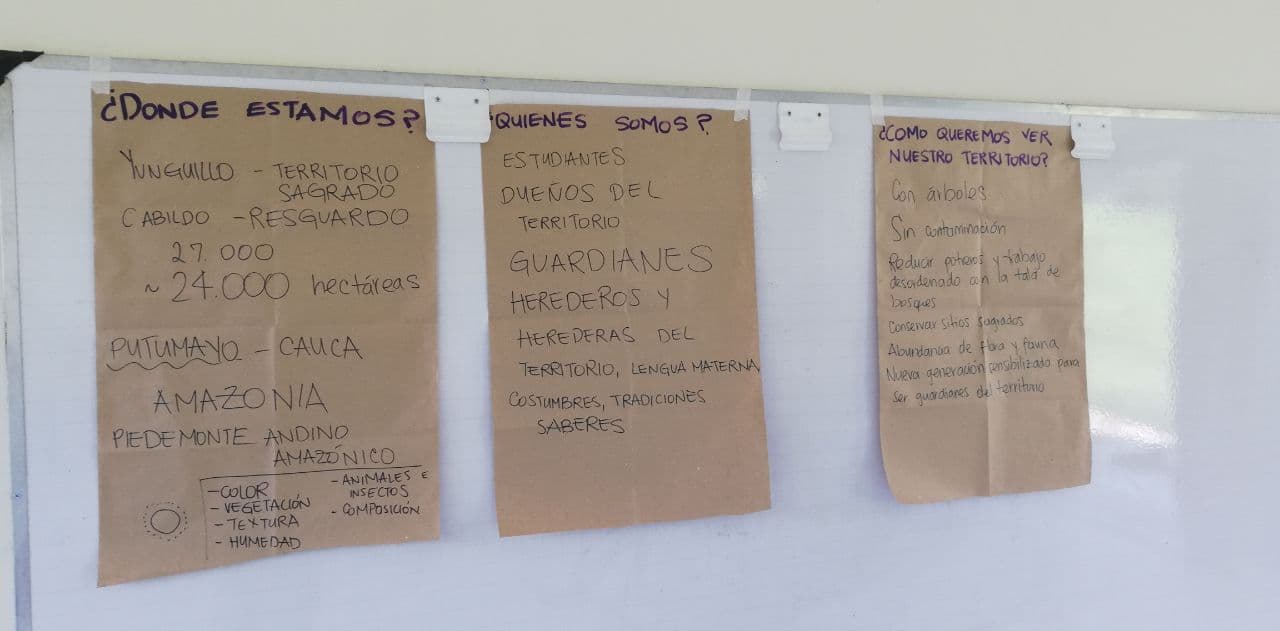 ¿DONDE ESTAMOS?
YUNGUILLO - TERRITORIO
SAGRADO
CABILDO - RESGUARDO
27.000
~ 24.000 hectáreas
PUTUMAYO - CAUCA
AMAZONIA
PIEDEMONTE ANDINO
AMAZÓNICO
- COLOR
- VEGETACIÓN
- TEXTURA
- HUMEDAD
- ANIMALES E
INSECTOS
- COMPOSICIÓN
¿QUIENES SOMOS?
ESTUDIANTES
DUEÑOS DEL
TERRITORIO
GUARDIANES
HEREDEROS Y
HEREDERAS DEL
TERRITORIO, LENGUA MATERNA,
COSTUMBRES, TRADICIONES
SABERES
¿COMO QUEREMOS VER
NUESTRO TERRITORIO?
Con árboles
Sin contaminación
Reducir potreros y trabajo
desordenado con la tala de
bosques
Conservar sitios sagrados
Abundancia de flora y fauna
Nueva generación sensibilizado para
ser guardianes del territorio